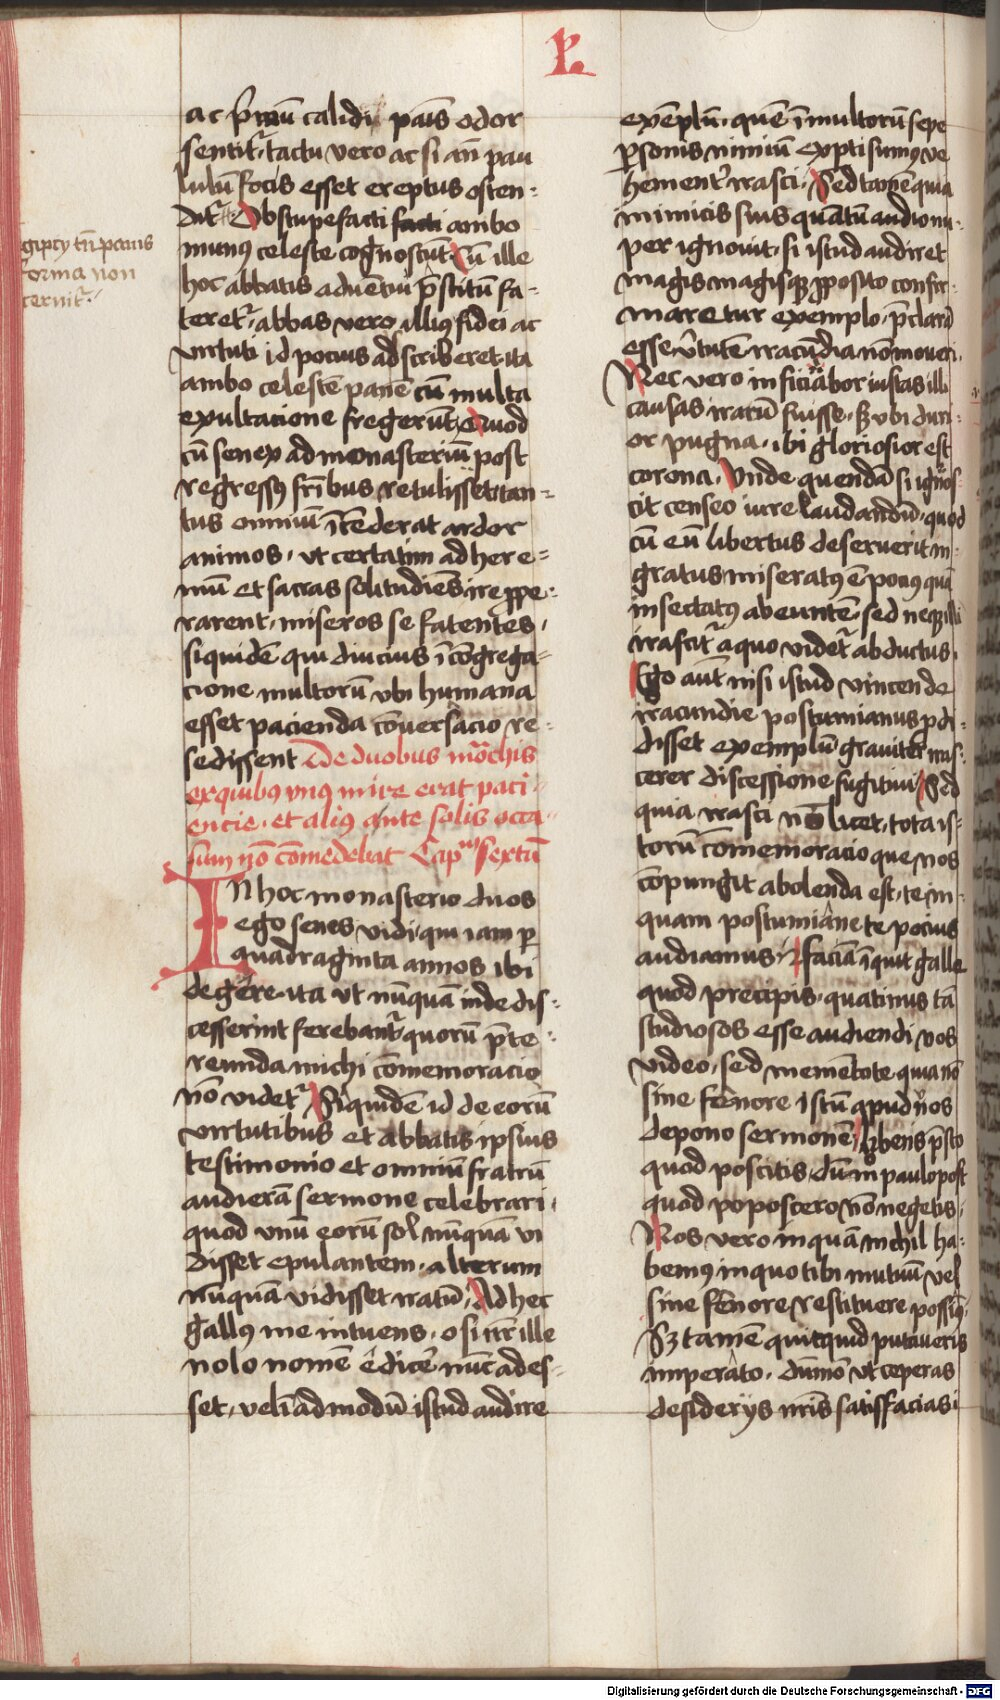 L
ac p̄mū calidi panis odor
sentit᷑. tactu vero ac si an̄ pau
lulū focis esset ereptus osten-
dit᷑. Obstupefacti facti ambo
munꝰ celeste cognoscūt. Cū ille
hoc abbatis aduētui p̄stitū fa-
teret᷑. abbas vero illiꝰ fidei ac
virtuti id pocius adscriberet. ita
ambo celestē panē cū multa
exultacione fregerūt. Quod
cū senex ad monasteriū post
regressꝰ fr̄ibus retulisset. tan-
tus omniū īcēderat ardor
animos. vt certatim ad here-
mū et sacras solitudīes ire ꝓpe-
rarent. miseros se fatentes.
siquidē qui diucius ī cōgrega-
cione multorū vbi humana
esset pacienda cōuersacio re-
sedissent De duobus mōchis
ex quibꝰ vnꝰ mire erat paci-
encie. et aliꝰ ante solis occa-
sum nō cōmedebat Capᵐ Sextū
In hoc monasterio duos
ego senes vidi. qui iam ꝑ
quadraginta annos ibi
degere. ita vt nūquā inde dis-
cesserint ferebant᷑. quorū p̄te-
reunda michi cōmemoracio
nō videt᷑. Siquidē id de eorū
virtutibus et abbatis ipsius
testimonio et omniū fratrū
audierā sermone celebrari.
quod vnū eorū sol nūquā vi
disset epulantem. alterum
nūquā vidisset iratū. Ad hec
gallꝰ me intuens. o si īcr̄ ille
nolo nomē edicē nūc ades-
set. velī admodū istud audire
gipcy tn̄ panis
forma non
cernit᷑.
exēplū. quē ī multorū sepe
ꝑsonis nimiū expti sumꝰ ve
hement᷑ irasci. Sed tamē quia
inimicis suis quātū audio nu-
per ignouit. si istud audiret
magis magisqꝫ ꝓposito confir-
maretur exemplo. p̄clarā
esse v̄tutē iracūdia nō moueri.
Nec vero inficiabor iustas illi
causas iratū fuisse. sꝫ vbi duri-
or pugna. ibi gloriosior est
corona. Vnde quendā si ignos-
cit censeo iure laudandū. quod
cū eū libertus deseruerit in-
gratus miseratꝰ ē pocius quā
insectatꝰ abeuntē. sed neqꝫ illi
irascit᷑ a quo videt᷑ abductus.
Ego aūt nisi istud vincende
iracundie postumianus ꝑdi-
disset exemplū grauiter iras-
cerer discessione fugitiui. Sed
quia irasci nō licet. tota is-
torū cōmemoracio que nos
cōpungit abolenda est. te in-
quam postumiane te pocius
audiamus. faciā īquit galle
quod precipis. quatinus tā
studiosos esse audiendi vos
video. sed mementote quia nō
sine fenore istū apud vos
depono sermonē. libens p̄sto
quod poscitis. dū m̄ paulo post
quod poposcero nō negetis.
Nos vero inquā nichil ha-
bemꝰ in quo tibi mutuū vel
sine fenore restituere possimꝰ.
Sꝫ tamē quitquid putaueris
imperato. dūmō vt ceperas
desiderijs nr̄is satisfacias i
Digitalisierung gefördert durch die Deutsche Forschungsgemeinschaft - DFG